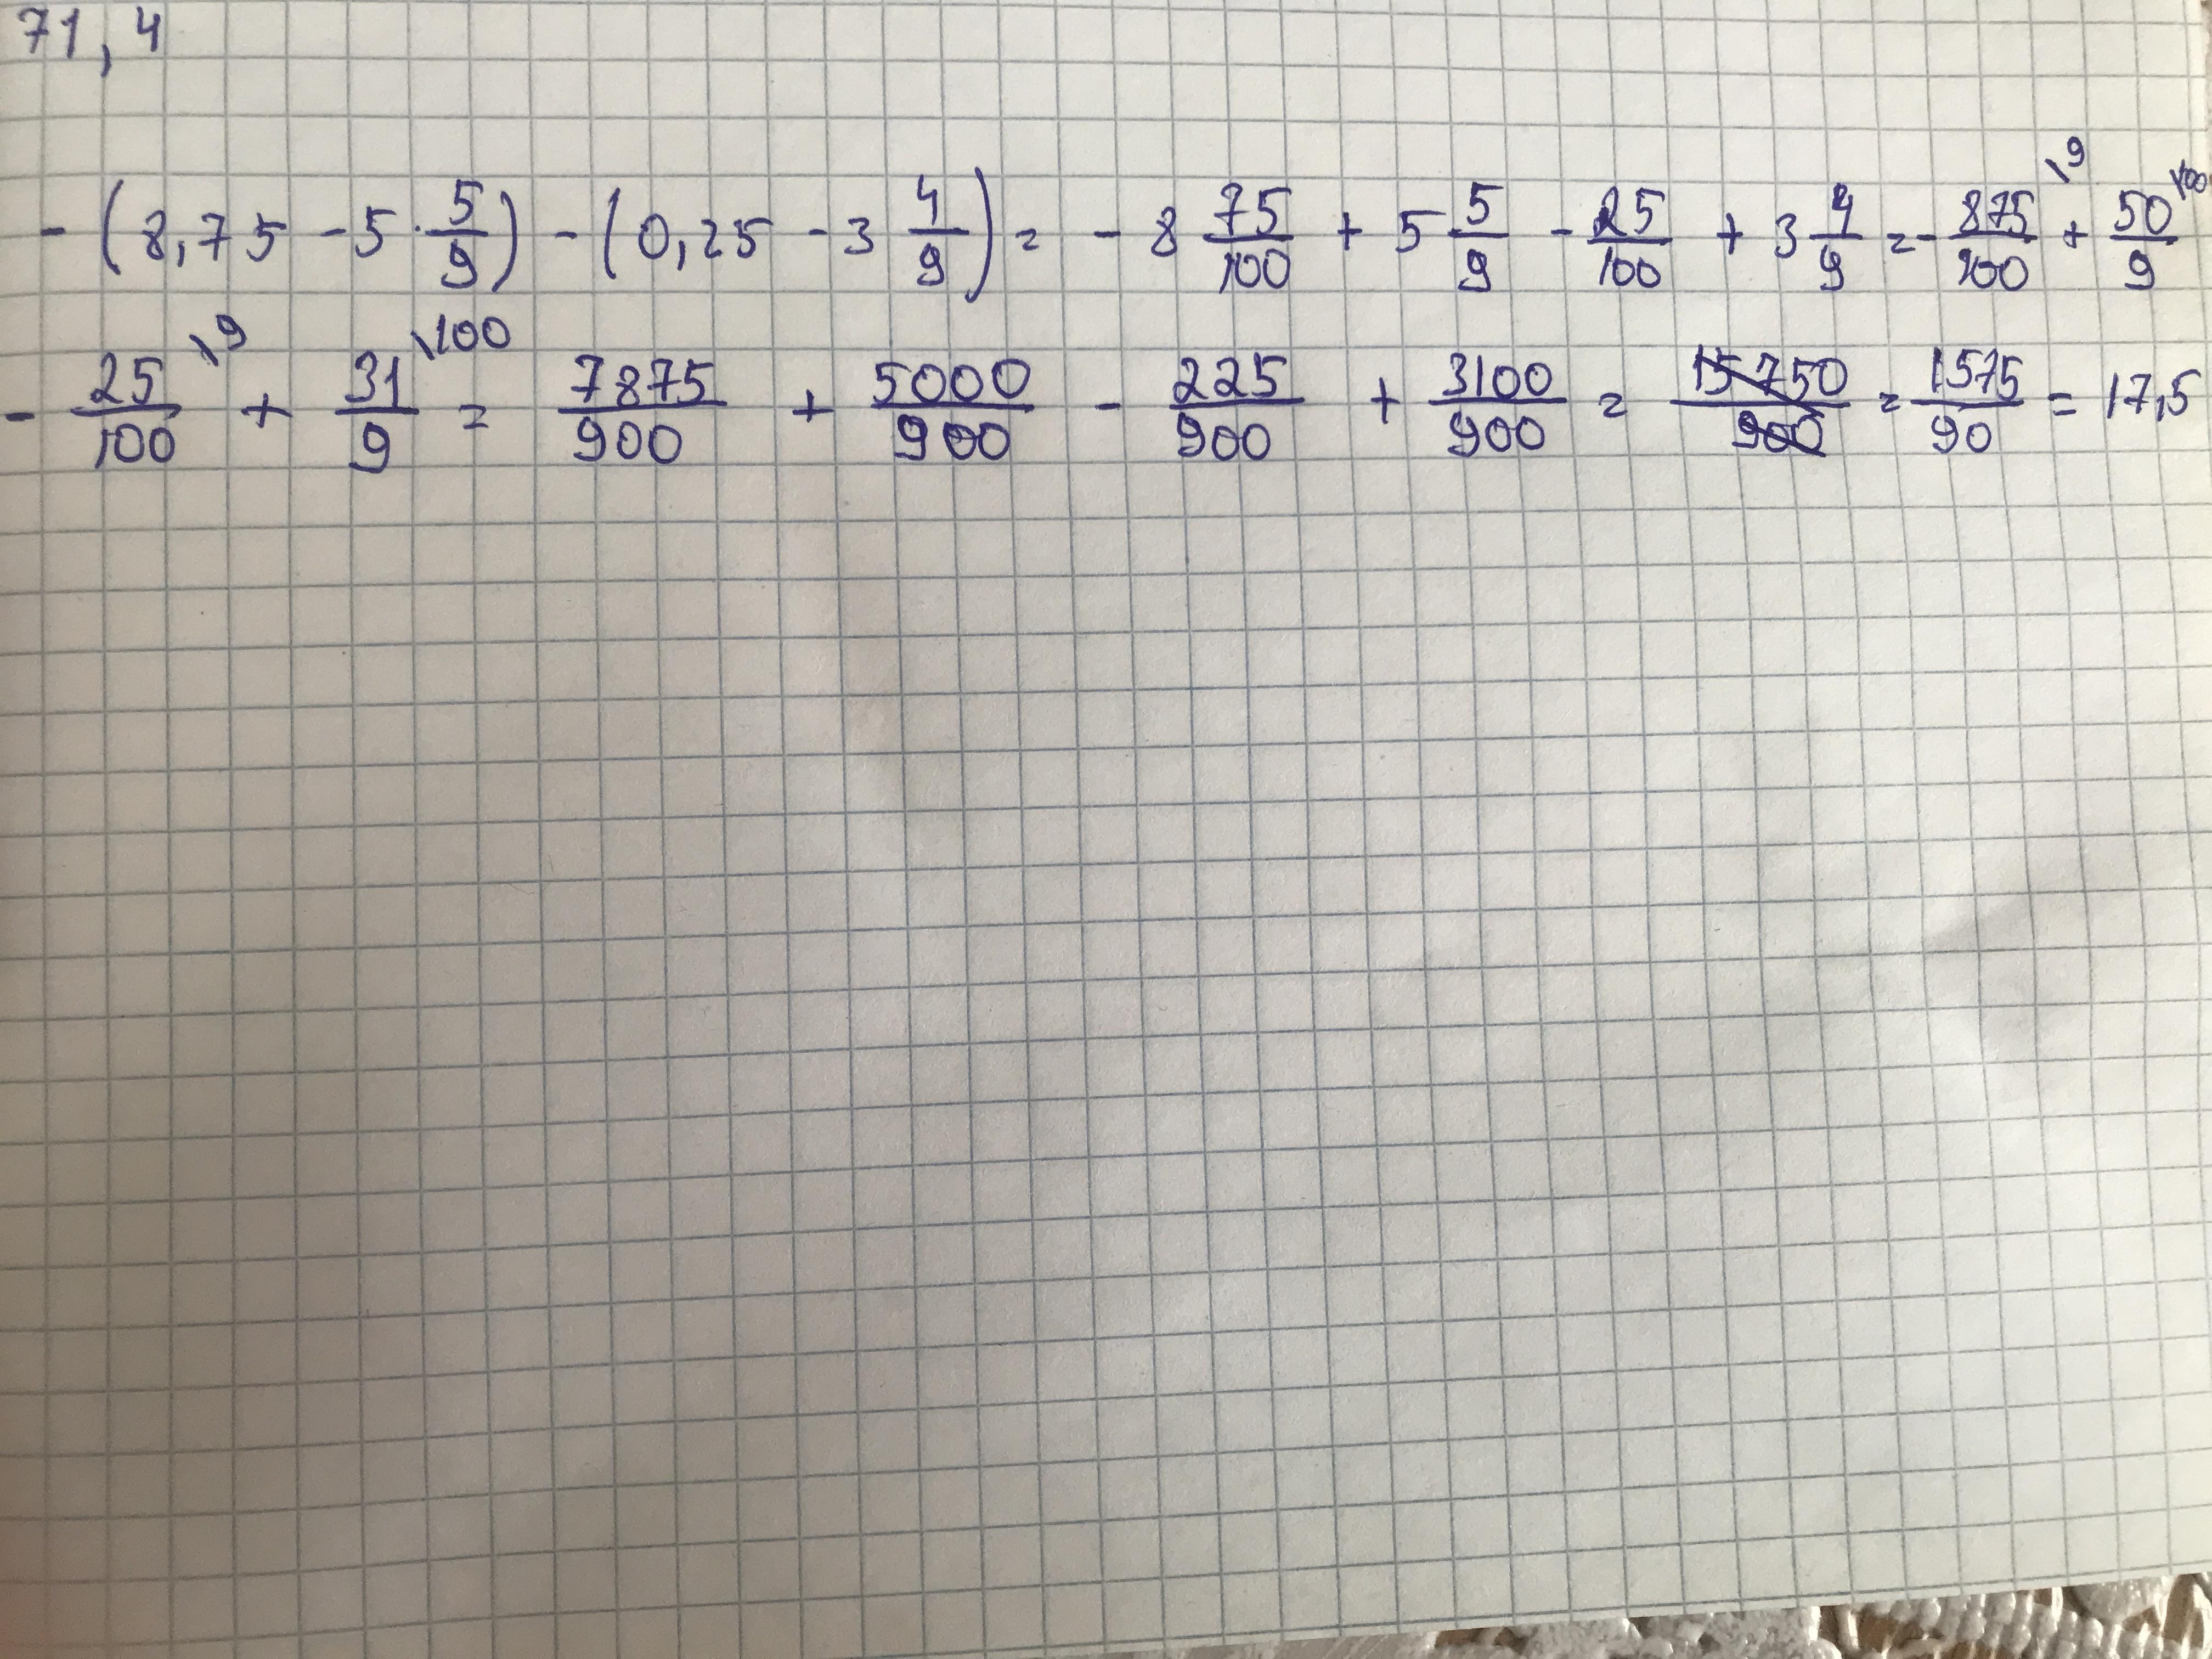 71, 4
- (8,75 - 5 · 5/9) - (0,25 - 3 4/9) = - 8 75/100 + 5 5/9 - 25/100 + 3 4/9 = - 875/100 \9 + 50/9 \100
- 25/100 \9 + 31/9 \100 = 7875/900 + 5000/900 - 225/900 + 3100/900 = 15750/900 = 1575/90 = 17,5